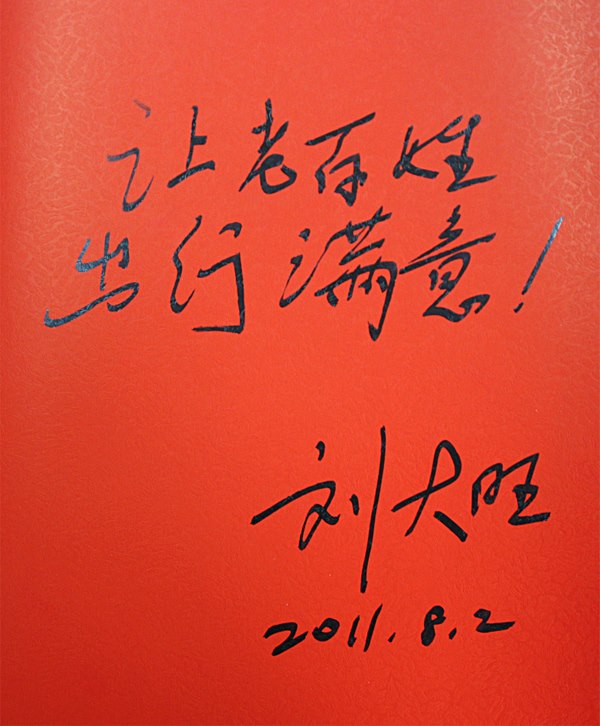 让老百姓
出行满意!
刘大旺
2011.8.2